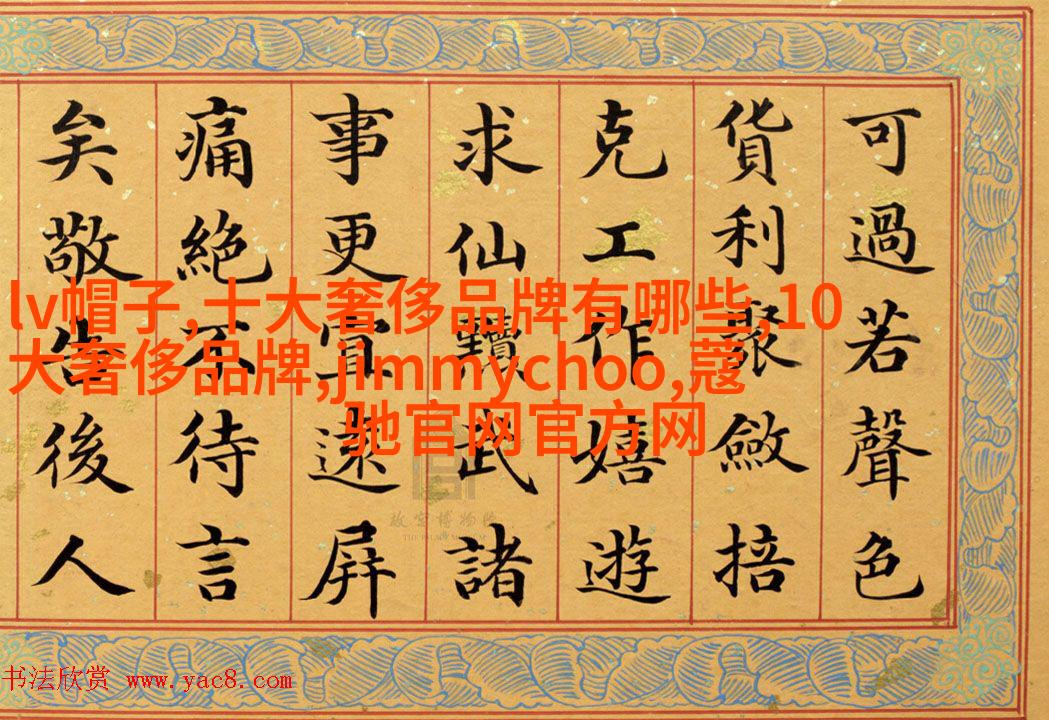 可過若聲色
貨利聚斂掊
克工作嬉遊
求仙黷武諸
事更宜遠屏
痛絕不待言
矣敬告後人
lv帽子,十大奢侈品牌有哪些,10
大奢侈品牌,jimmychoo,蔻
驰官网官方网
故宫博物院
书法欣赏 www.yac8.com